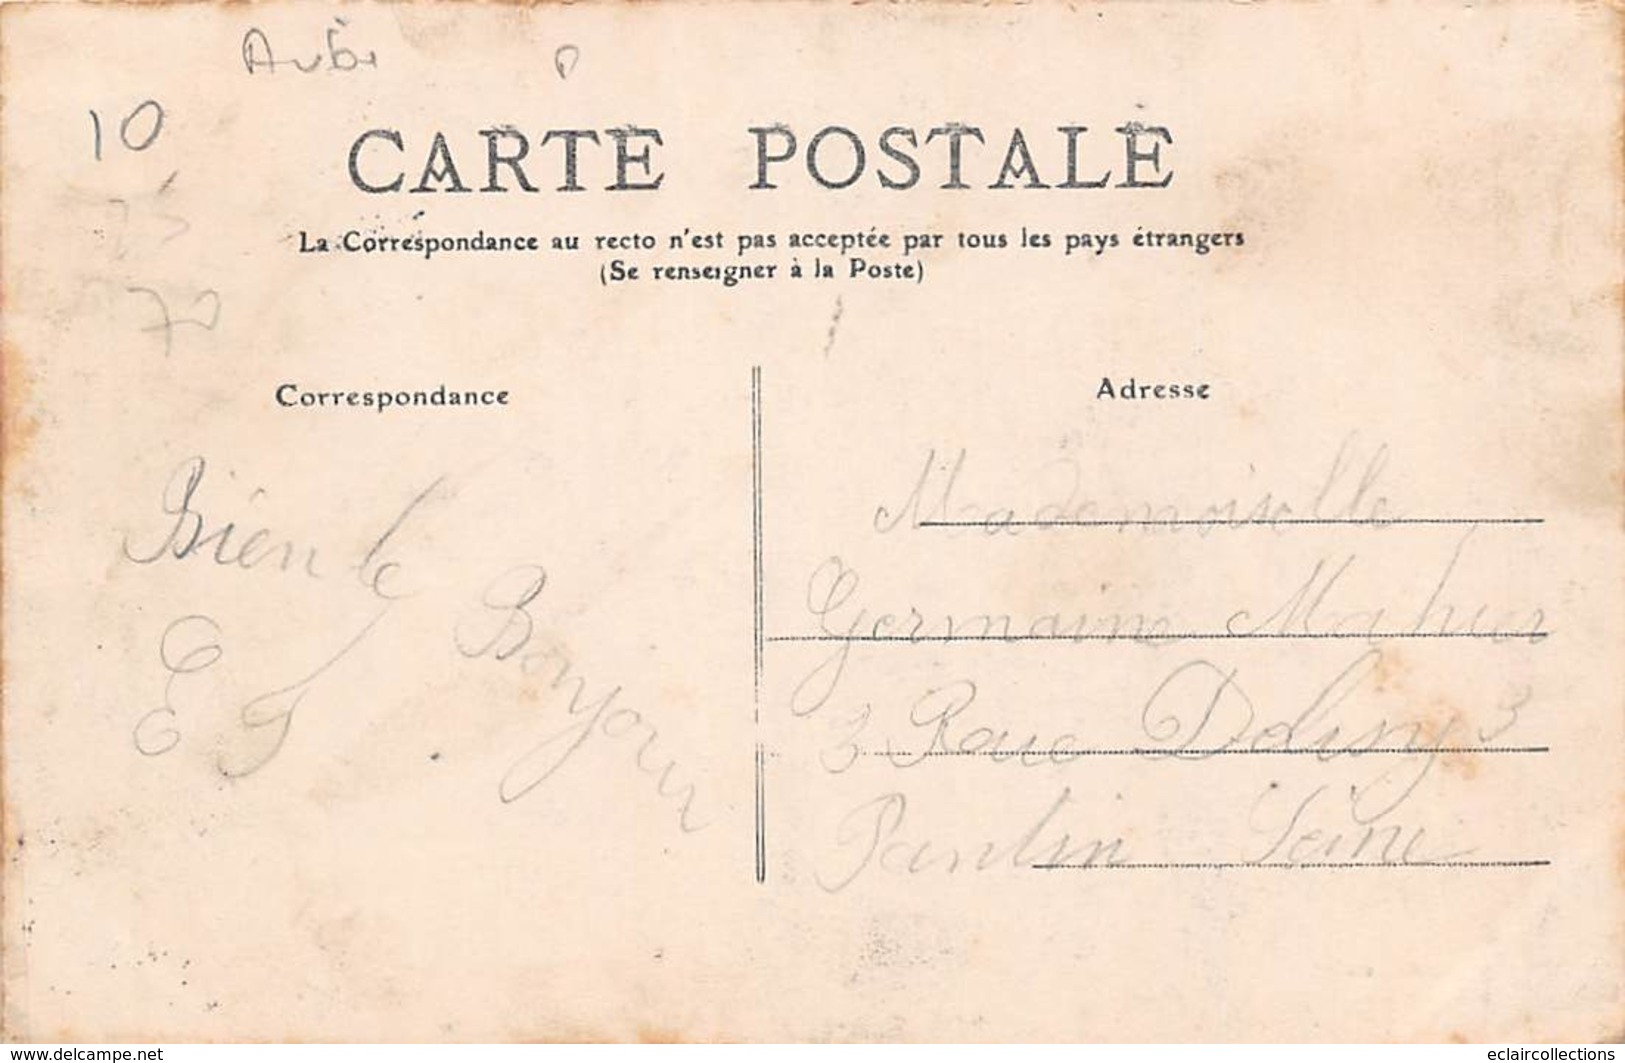 Aube P
10
75
70
CARTE POSTALE
La Correspondance au recto n'est pas acceptée par tous les pays étrangers
(Se renseigner à la Poste)
Correspondance
Bien le
Bonjour
Adresse
Mademoiselle
Germaine Mahier
3 Rue 3
Pantin Seine
www.delcampe.net
eclaircollections